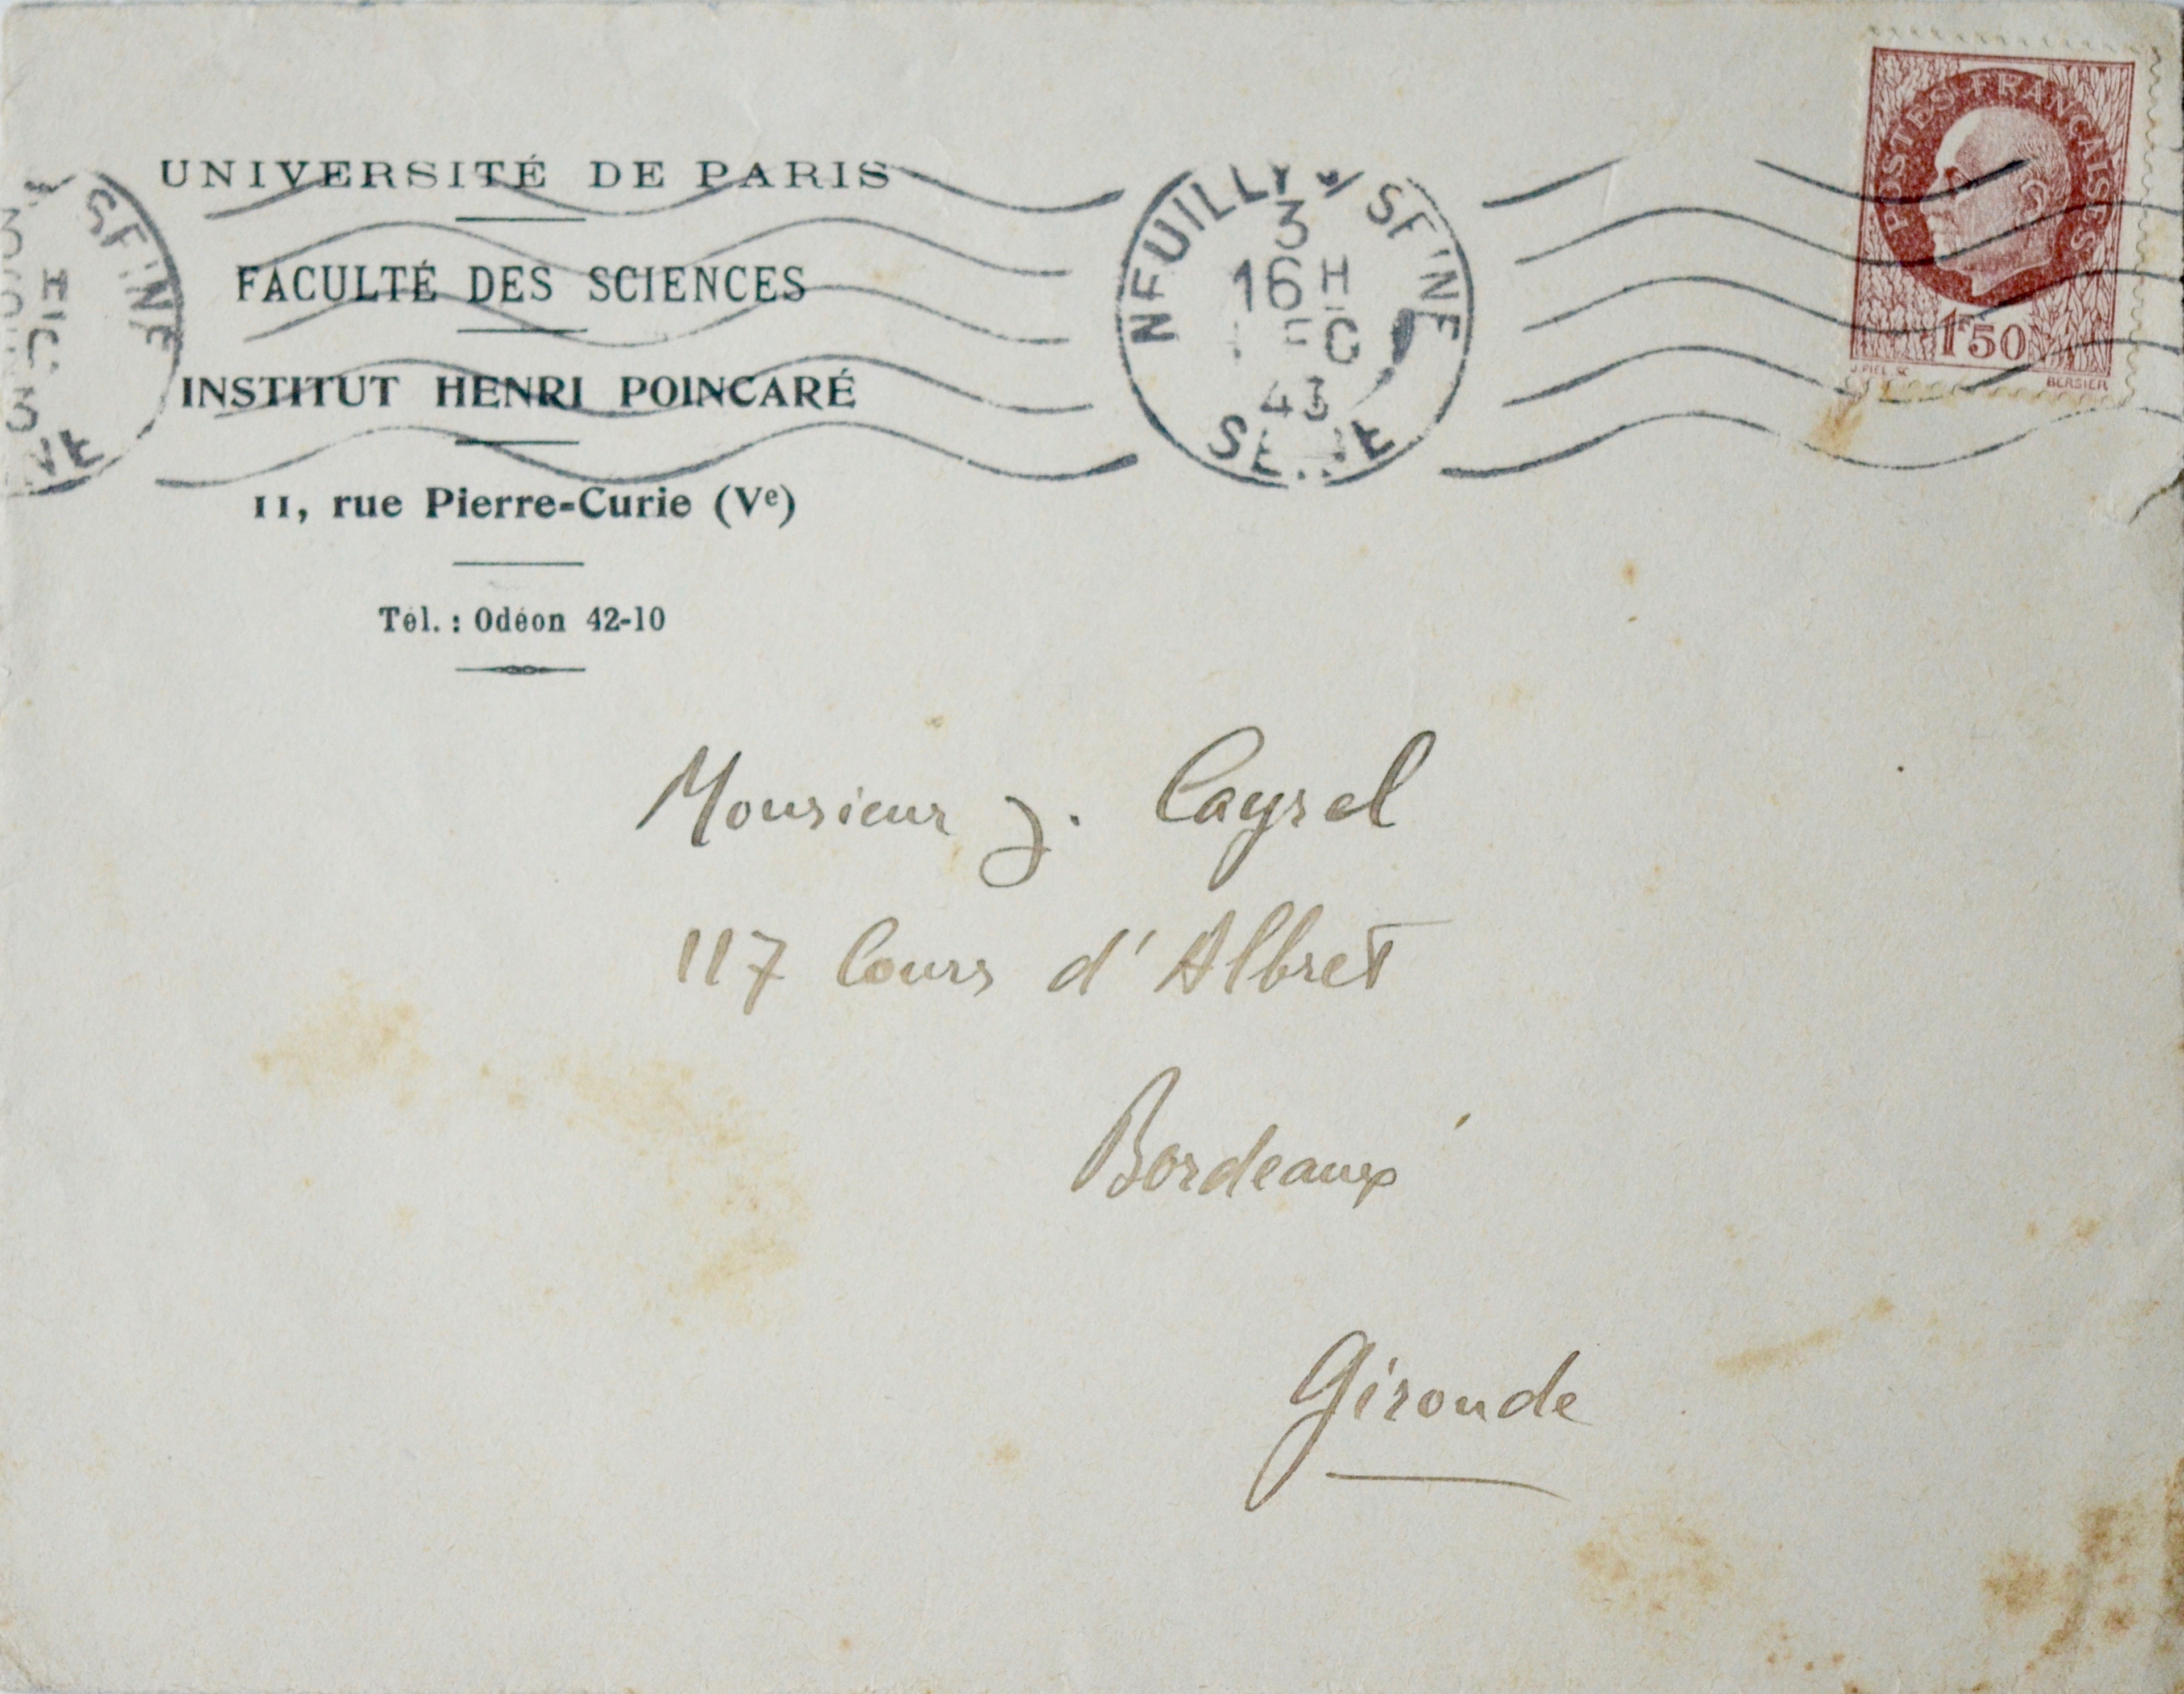 UNIVERSITÉ DE PARIS
FACULTÉ DES SCIENCES
INSTITUT HENRI POINCARÉ
11, rue Pierre-Curie (Ve)
Tél. : Odéon 42-10
NEUILLY S/ SEINE
3
16 H
43
SEINE
SEINE
POSTES FRANÇAISES
1F50
J. PIEL SC
BERSIER
Monsieur J. Cayrel
117 Cours d'Albret
Bordeaux
Gironde